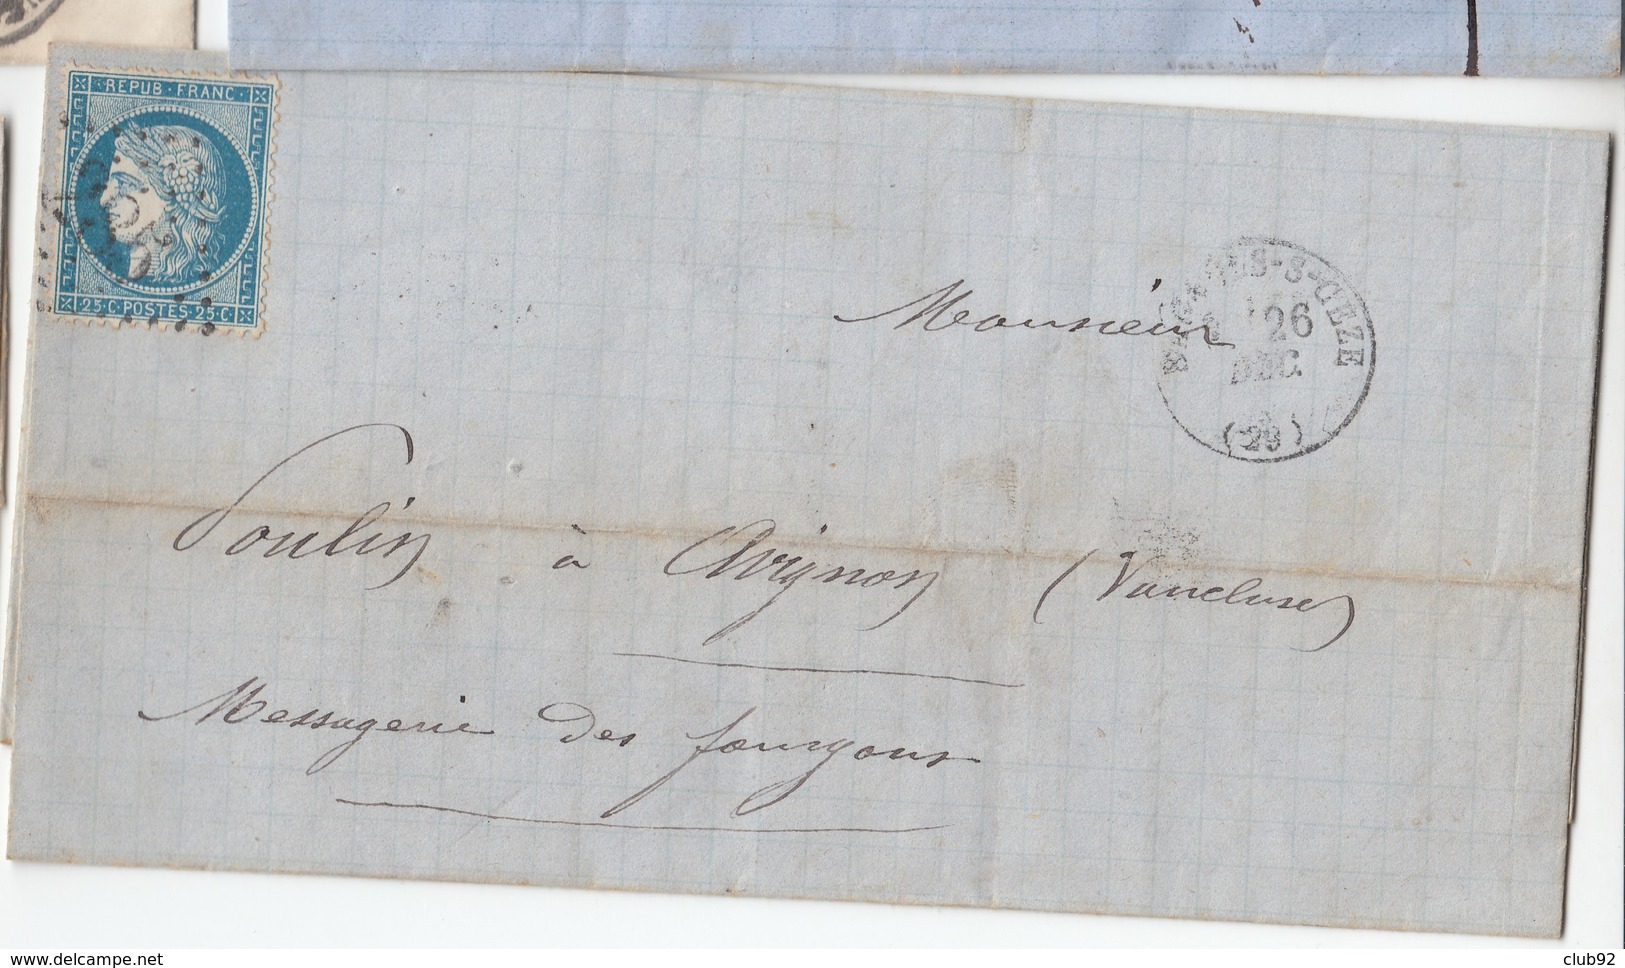 REPUB · FRANC ·
25·C·POSTES·25·C·
S-S-CEZE
26
DEC.
(29)
Monsieur
Poulin à Avignon (Vaucluse)
Messagerie des fourgons
www.delcampe.net
club92